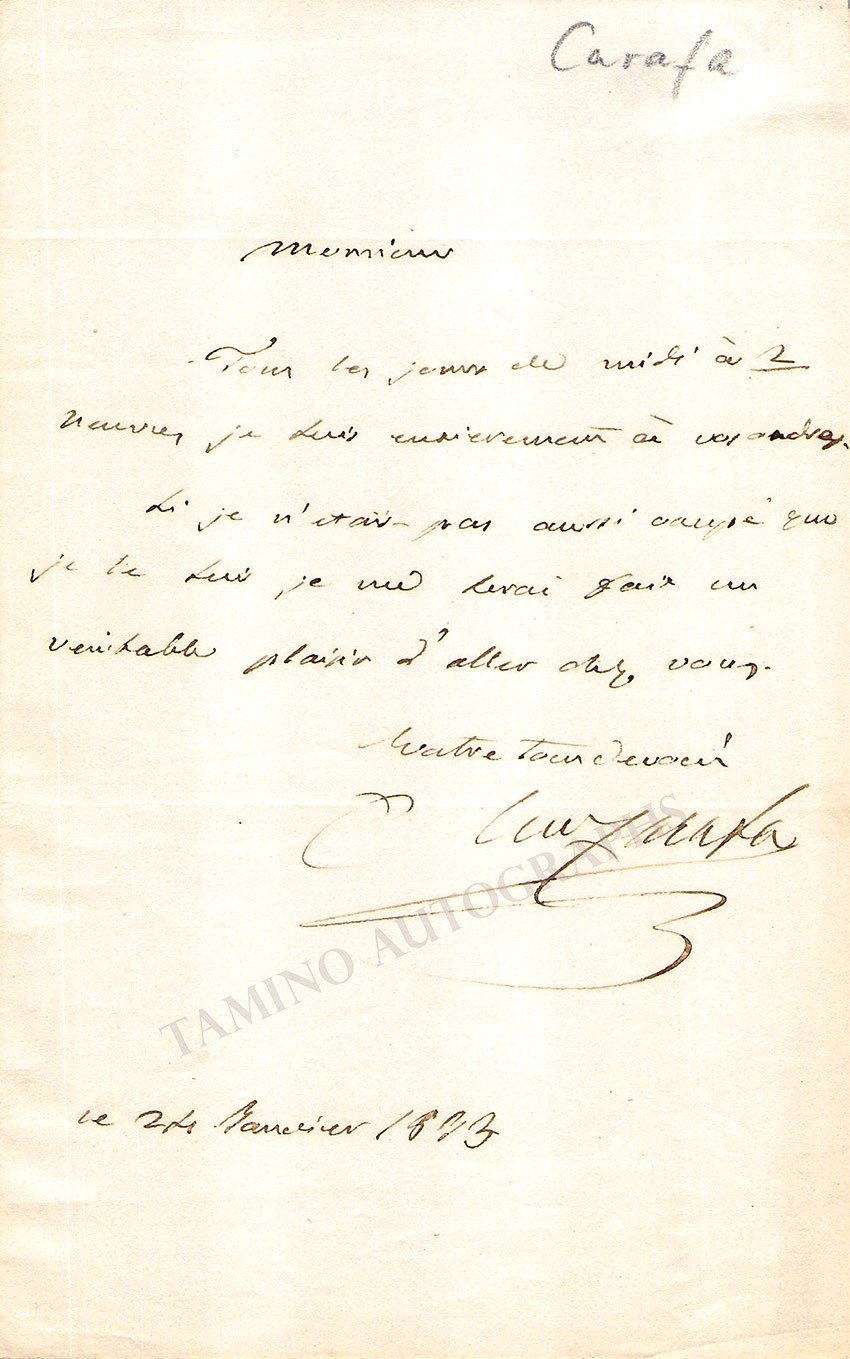 Carafa
Monsieur
Tous les jours de midi à 2
heures, je suis entierement à vos ordres.
Si je n'etais pas aussi occupé que
je le suis je me serai fait un
veritable plaisir d'aller chez vous.
Votre tout devoué
Carafa
TAMINO AUTOGRAPHS
le 24 Janvier